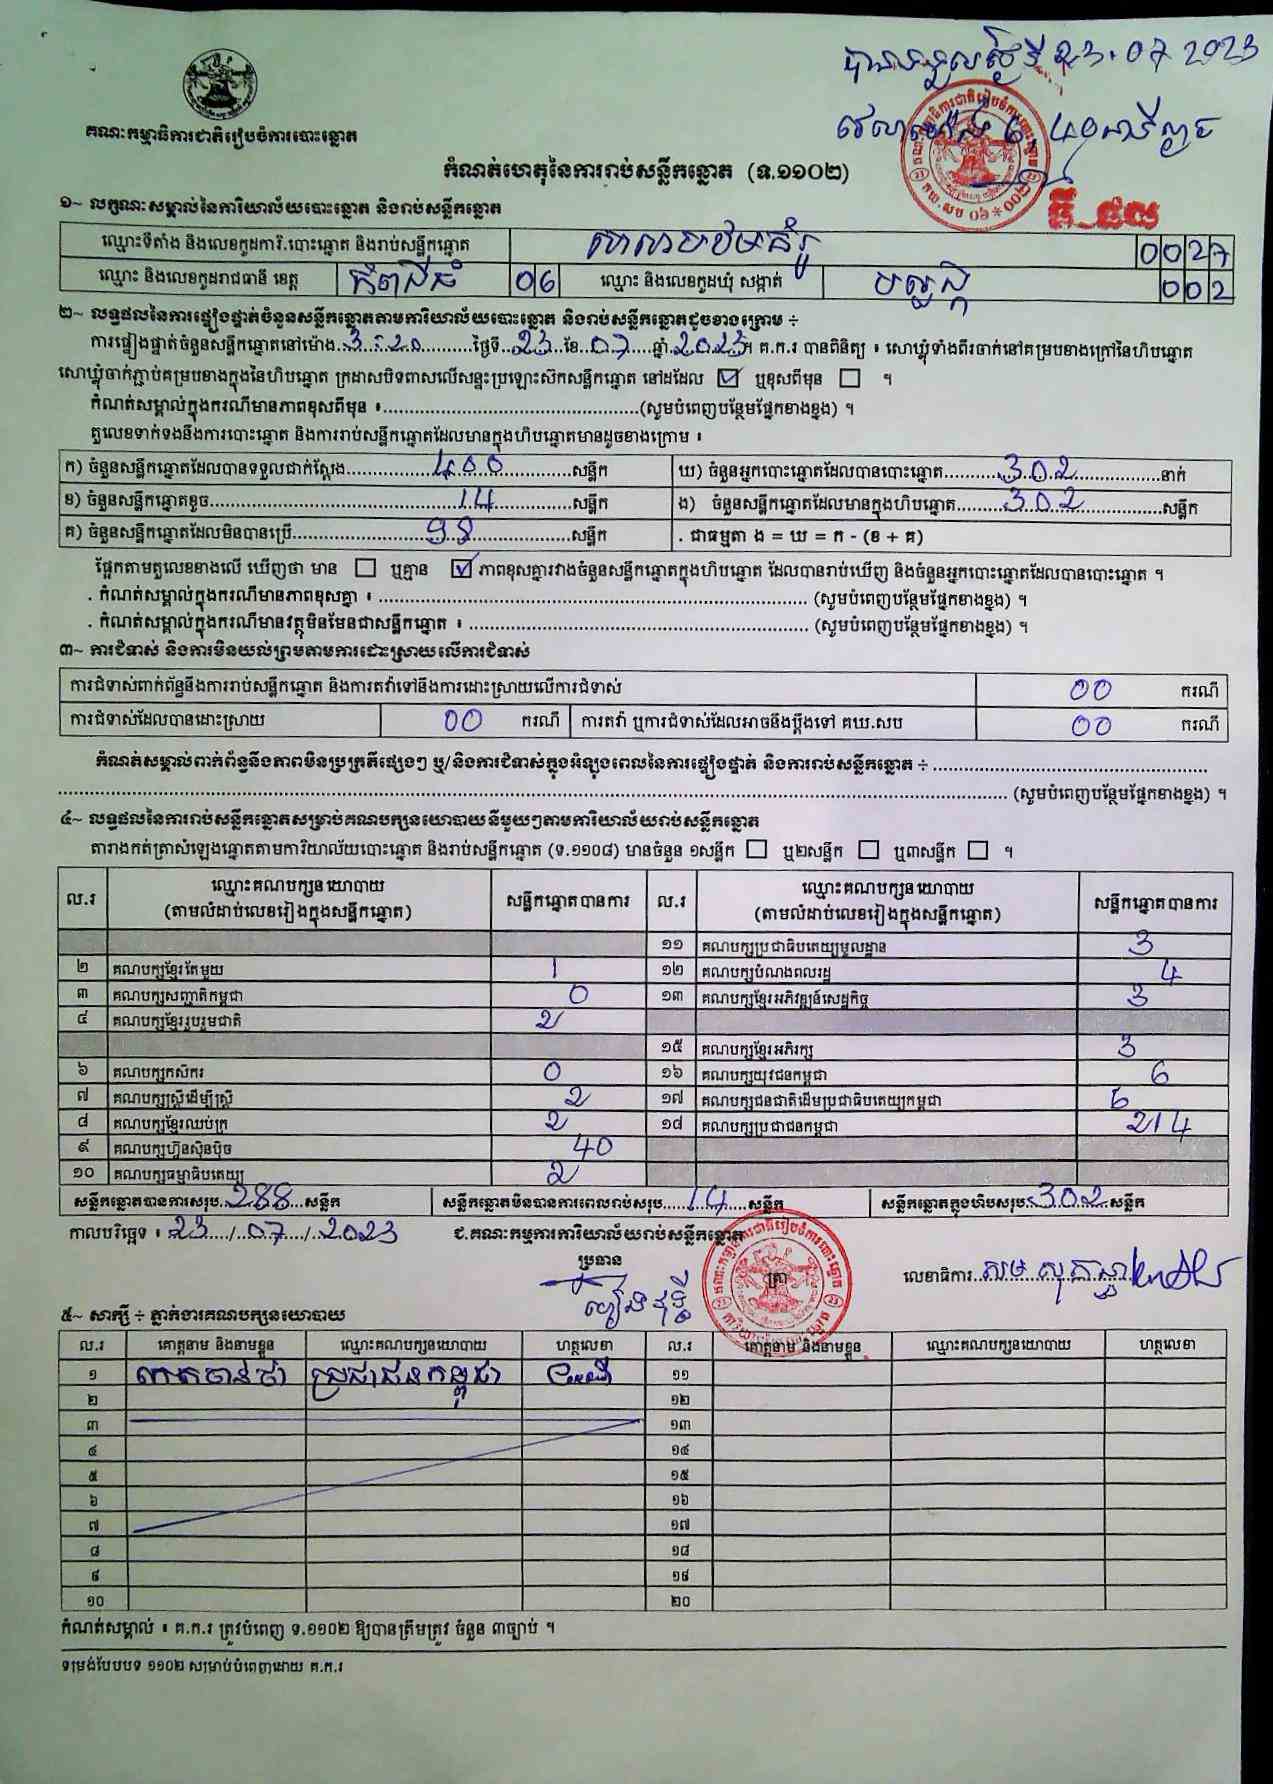 បានទទួលថ្ងៃទី 23.07 2023
គណៈកម្មាធិការជាតិរៀបចំការបោះឆ្នោត
កំណត់ហេតុនៃការរាប់សន្លឹកឆ្នោត (ទ.១១០២)
១~ លក្ខណៈសម្គាល់នៃការិយាល័យបោះឆ្នោត និងរាប់សន្លឹកឆ្នោត
ឈ្មោះទីតាំង និងលេខកូដការិ.បោះឆ្នោត និងរាប់សន្លឹកឆ្នោត 0027
ឈ្មោះ និងលេខកូដរាជធានី ខេត្ត កំពង់ធំ 06 ឈ្មោះ និងលេខកូដឃុំ សង្កាត់ 002
២~ លទ្ធផលនៃការផ្ទៀងផ្ទាត់ចំនួនសន្លឹកឆ្នោតតាមការិយាល័យបោះឆ្នោត និងរាប់សន្លឹកឆ្នោតដូចខាងក្រោម ÷
ការផ្ទៀងផ្ទាត់ចំនួនសន្លឹកឆ្នោតនៅម៉ោង.3:20.........ថ្ងៃទី..23..ខែ..07...ឆ្នាំ.2023.។ គ.ក.រ បានពិនិត្យ ៖ សោឃ្លុំទាំងពីរចាក់នៅគម្របខាងក្រៅនៃហិបឆ្នោត
សោឃ្លុំចាក់ភ្ជាប់គម្របខាងក្នុងនៃហិបឆ្នោត ក្រដាសបិទពាសលើសន្ទះប្រឡោះស៊កសន្លឹកឆ្នោត នៅដដែល ☑ ឬខុសពីមុន ☐ ។
កំណត់សម្គាល់ក្នុងករណីមានភាពខុសពីមុន ៖..........................................(សូមបំពេញបន្ថែមផ្នែកខាងខ្នង) ។
តួលេខទាក់ទងនឹងការបោះឆ្នោត និងការរាប់សន្លឹកឆ្នោតដែលមានក្នុងហិបឆ្នោតមានដូចខាងក្រោម ៖
ក) ចំនួនសន្លឹកឆ្នោតដែលបានទទួលជាក់ស្តែង..........400..........សន្លឹក ឃ) ចំនួនអ្នកបោះឆ្នោតដែលបានបោះឆ្នោត..........302..........នាក់
ខ) ចំនួនសន្លឹកឆ្នោតខូច..........14..........សន្លឹក ង) ចំនួនសន្លឹកឆ្នោតដែលមានក្នុងហិបឆ្នោត..........302..........សន្លឹក
គ) ចំនួនសន្លឹកឆ្នោតដែលមិនបានប្រើ..........98..........សន្លឹក . ជាធម្មតា ង = ឃ = ក - (ខ + គ)
ផ្អែកតាមតួលេខខាងលើ ឃើញថា មាន ☐ ឬគ្មាន ☑ ភាពខុសគ្នារវាងចំនួនសន្លឹកឆ្នោតក្នុងហិបឆ្នោត ដែលបានរាប់ឃើញ និងចំនួនអ្នកបោះឆ្នោតដែលបានបោះឆ្នោត ។
. កំណត់សម្គាល់ក្នុងករណីមានភាពខុសគ្នា ៖ .......................................................... (សូមបំពេញបន្ថែមផ្នែកខាងខ្នង) ។
. កំណត់សម្គាល់ក្នុងករណីមានវត្ថុមិនមែនជាសន្លឹកឆ្នោត ៖ .............................................. (សូមបំពេញបន្ថែមផ្នែកខាងខ្នង) ។
៣~ ការជំទាស់ និងការមិនយល់ព្រមតាមការដោះស្រាយលើការជំទាស់
ការជំទាស់ពាក់ព័ន្ធនឹងការរាប់សន្លឹកឆ្នោត និងការតវ៉ាទៅនឹងការដោះស្រាយលើការជំទាស់ 00 ករណី
ការជំទាស់ដែលបានដោះស្រាយ 00 ករណី ការតវ៉ា ឬការជំទាស់ដែលអាចនឹងប្តឹងទៅ គឃ.សប 00 ករណី
កំណត់សម្គាល់ពាក់ព័ន្ធនឹងភាពមិនប្រក្រតីផ្សេងៗ ឬ/និងការជំទាស់ក្នុងអំឡុងពេលនៃការផ្ទៀងផ្ទាត់ និងការរាប់សន្លឹកឆ្នោត ÷ ..............................
.............................................................................................................. (សូមបំពេញបន្ថែមផ្នែកខាងខ្នង) ។
៤~ លទ្ធផលនៃការរាប់សន្លឹកឆ្នោតសម្រាប់គណបក្សនយោបាយនីមួយៗតាមការិយាល័យរាប់សន្លឹកឆ្នោត
តារាងកត់ត្រាសំឡេងឆ្នោតតាមការិយាល័យបោះឆ្នោត និងរាប់សន្លឹកឆ្នោត (ទ.១១០៨) មានចំនួន ១សន្លឹក ☐ ឬ២សន្លឹក ☐ ឬ៣សន្លឹក ☐ ។
ល.រ ឈ្មោះគណបក្សនយោបាយ (តាមលំដាប់លេខរៀងក្នុងសន្លឹកឆ្នោត) សន្លឹកឆ្នោតបានការ ល.រ ឈ្មោះគណបក្សនយោបាយ (តាមលំដាប់លេខរៀងក្នុងសន្លឹកឆ្នោត) សន្លឹកឆ្នោតបានការ
១១ គណបក្សប្រជាធិបតេយ្យមូលដ្ឋាន 3
២ គណបក្សខ្មែរតែមួយ 1 ១២ គណបក្សបំណងពលរដ្ឋ 4
៣ គណបក្សសញ្ជាតិកម្ពុជា 0 ១៣ គណបក្សខ្មែរអភិវឌ្ឍន៍សេដ្ឋកិច្ច 3
៤ គណបក្សខ្មែររួបរួមជាតិ 2
១៥ គណបក្សខ្មែរអភិរក្ស 3
៦ គណបក្សកសិករ 0 ១៦ គណបក្សយុវជនកម្ពុជា 6
៧ គណបក្សស្ត្រីដើម្បីស្ត្រី 2 ១៧ គណបក្សជនជាតិដើមប្រជាធិបតេយ្យកម្ពុជា 6
៨ គណបក្សខ្មែរឈប់ក្រ 2 ១៨ គណបក្សប្រជាជនកម្ពុជា 214
៩ គណបក្សហ៊្វុនស៊ិនប៉ិច 40
១០ គណបក្សធម្មាធិបតេយ្យ 2
សន្លឹកឆ្នោតបានការសរុប..288...សន្លឹក សន្លឹកឆ្នោតមិនបានការពេលរាប់សរុប.....14.....សន្លឹក សន្លឹកឆ្នោតក្នុងហិបសរុប.302.....សន្លឹក
កាលបរិច្ឆេទ ៖ 23 / 07 / 2023 ជ.គណៈកម្មការការិយាល័យរាប់សន្លឹកឆ្នោត
ប្រធាន
ត្រា
លេខាធិការ
៥~ សាក្សី ÷ ភ្នាក់ងារគណបក្សនយោបាយ
ល.រ គោត្តនាម និងនាមខ្លួន ឈ្មោះគណបក្សនយោបាយ ហត្ថលេខា ល.រ គោត្តនាម និងនាមខ្លួន ឈ្មោះគណបក្សនយោបាយ ហត្ថលេខា
១ ប្រជាជនកម្ពុជា ១១
២ ១២
៣ ១៣
៤ ១៤
៥ ១៥
៦ ១៦
៧ ១៧
៨ ១៨
៩ ១៩
១០ ២០
កំណត់សម្គាល់ ៖ គ.ក.រ ត្រូវបំពេញ ទ.១១០២ ឱ្យបានត្រឹមត្រូវ ចំនួន ៣ច្បាប់ ។
ទម្រង់បែបបទ ១១០២ សម្រាប់បំពេញដោយ គ.ក.រ